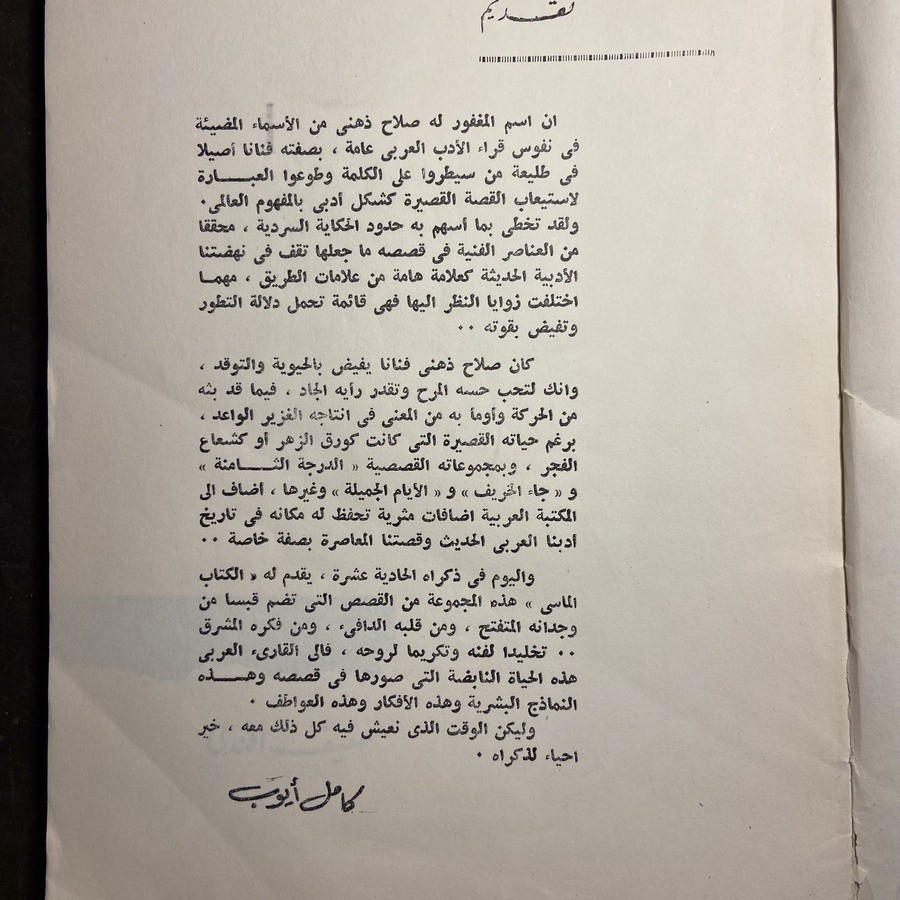 تقديم
ان اسم المغفور له صلاح ذهنى من الأسماء المضيئة
فى نفوس قراء الأدب العربى عامة ، بصفته فنانا أصيلا
فى طليعة من سيطروا على الكلمة وطوعوا العبـــارة
لاستيعاب القصة القصيرة كشكل أدبى بالمفهوم العالمى.
ولقد تخطى بما أسهم به حدود الحكاية السردية ، محققا
من العناصر الفنية فى قصصه ما جعلها تقف فى نهضتنا
الأدبية الحديثة كعلامة هامة من علامات الطريق ، مهمـا
اختلفت زوايا النظر اليها فهى قائمة تحمل دلالة التطور
وتفيض بقوته ..
كان صلاح ذهنى فنانا يفيض بالحيوية والتوقد ،
وانك لتحب حسه المرح وتقدر رأيه الجاد ، فيما قد بثه
من الحركة وأومأ به من المعنى فى انتاجه الغزير الواعد ،
برغم حياته القصيرة التى كانت كورق الزهر أو كشعاع
الفجر ، وبمجموعاته القصصية « الدرجة الثـــامنة »
و « جاء الخريف » و « الأيام الجميلة » وغيرها ، أضاف الى
المكتبة العربية اضافات مثرية تحفظ له مكانه فى تاريخ
أدبنا العربى الحديث وقصتنا المعاصرة بصفة خاصة ..
واليوم فى ذكراه الحادية عشرة ، يقدم له « الكتاب
الماسى » هذه المجموعة من القصص التى تضم قبسا من
وجدانه المتفتح ، ومن قلبه الدافىء ، ومن فكره المشرق
.. تخليدا لفنه وتكريما لروحه ، فالى القارىء العربى
هذه الحياة النابضة التى صورها فى قصصه وهـــذه
النماذج البشرية وهذه الأفكار وهذه العواطف .
وليكن الوقت الذى نعيش فيه كل ذلك معه ، خير
احياء لذكراه .
كامل أيوب